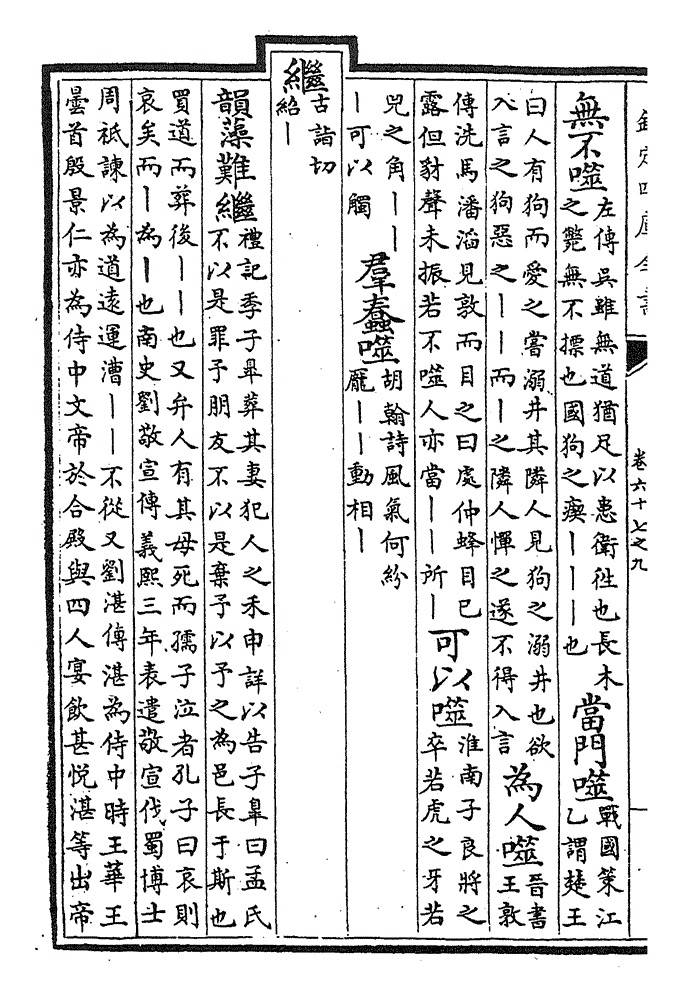 欽定四庫全書
卷六十七之九
無不噬
左傳吳雖無道猶足以患衛徃也長木
之斃無不摽也國狗之瘈丨丨丨也
當門噬
戰國策江
乙謂楚王
曰人有狗而愛之嘗溺井其隣人見狗之溺井也欲
入言之狗惡之丨丨而丨之隣人憚之遂不得入言
為人噬
晉書
王敦
傳洗馬潘滔見敦而目之曰處仲蜂目已
露但豺聲未振若不噬人亦當丨丨所丨
可以噬
淮南子良將之
卒若虎之牙若
兕之角丨丨
丨可以觸
羣蠢噬
胡翰詩風氣何紛
厖丨丨動相丨
繼
古詣切
紹丨
韻藻難繼
禮記季子臯葬其妻犯人之禾申詳以告子臯曰孟氏
不以是罪予朋友不以是棄予以予之為邑長于斯也
買道而葬後丨丨也又弁人有其母死而孺子泣者孔子曰哀則
哀矣而丨為丨也南史劉敬宣傳義熙三年表遣敬宣伐蜀博士
周祇諫以為道遠運漕丨丨不從又劉湛傳湛為侍中時王華王
曇首殷景仁亦為侍中文帝於合殿與四人宴飲甚悅湛等出帝